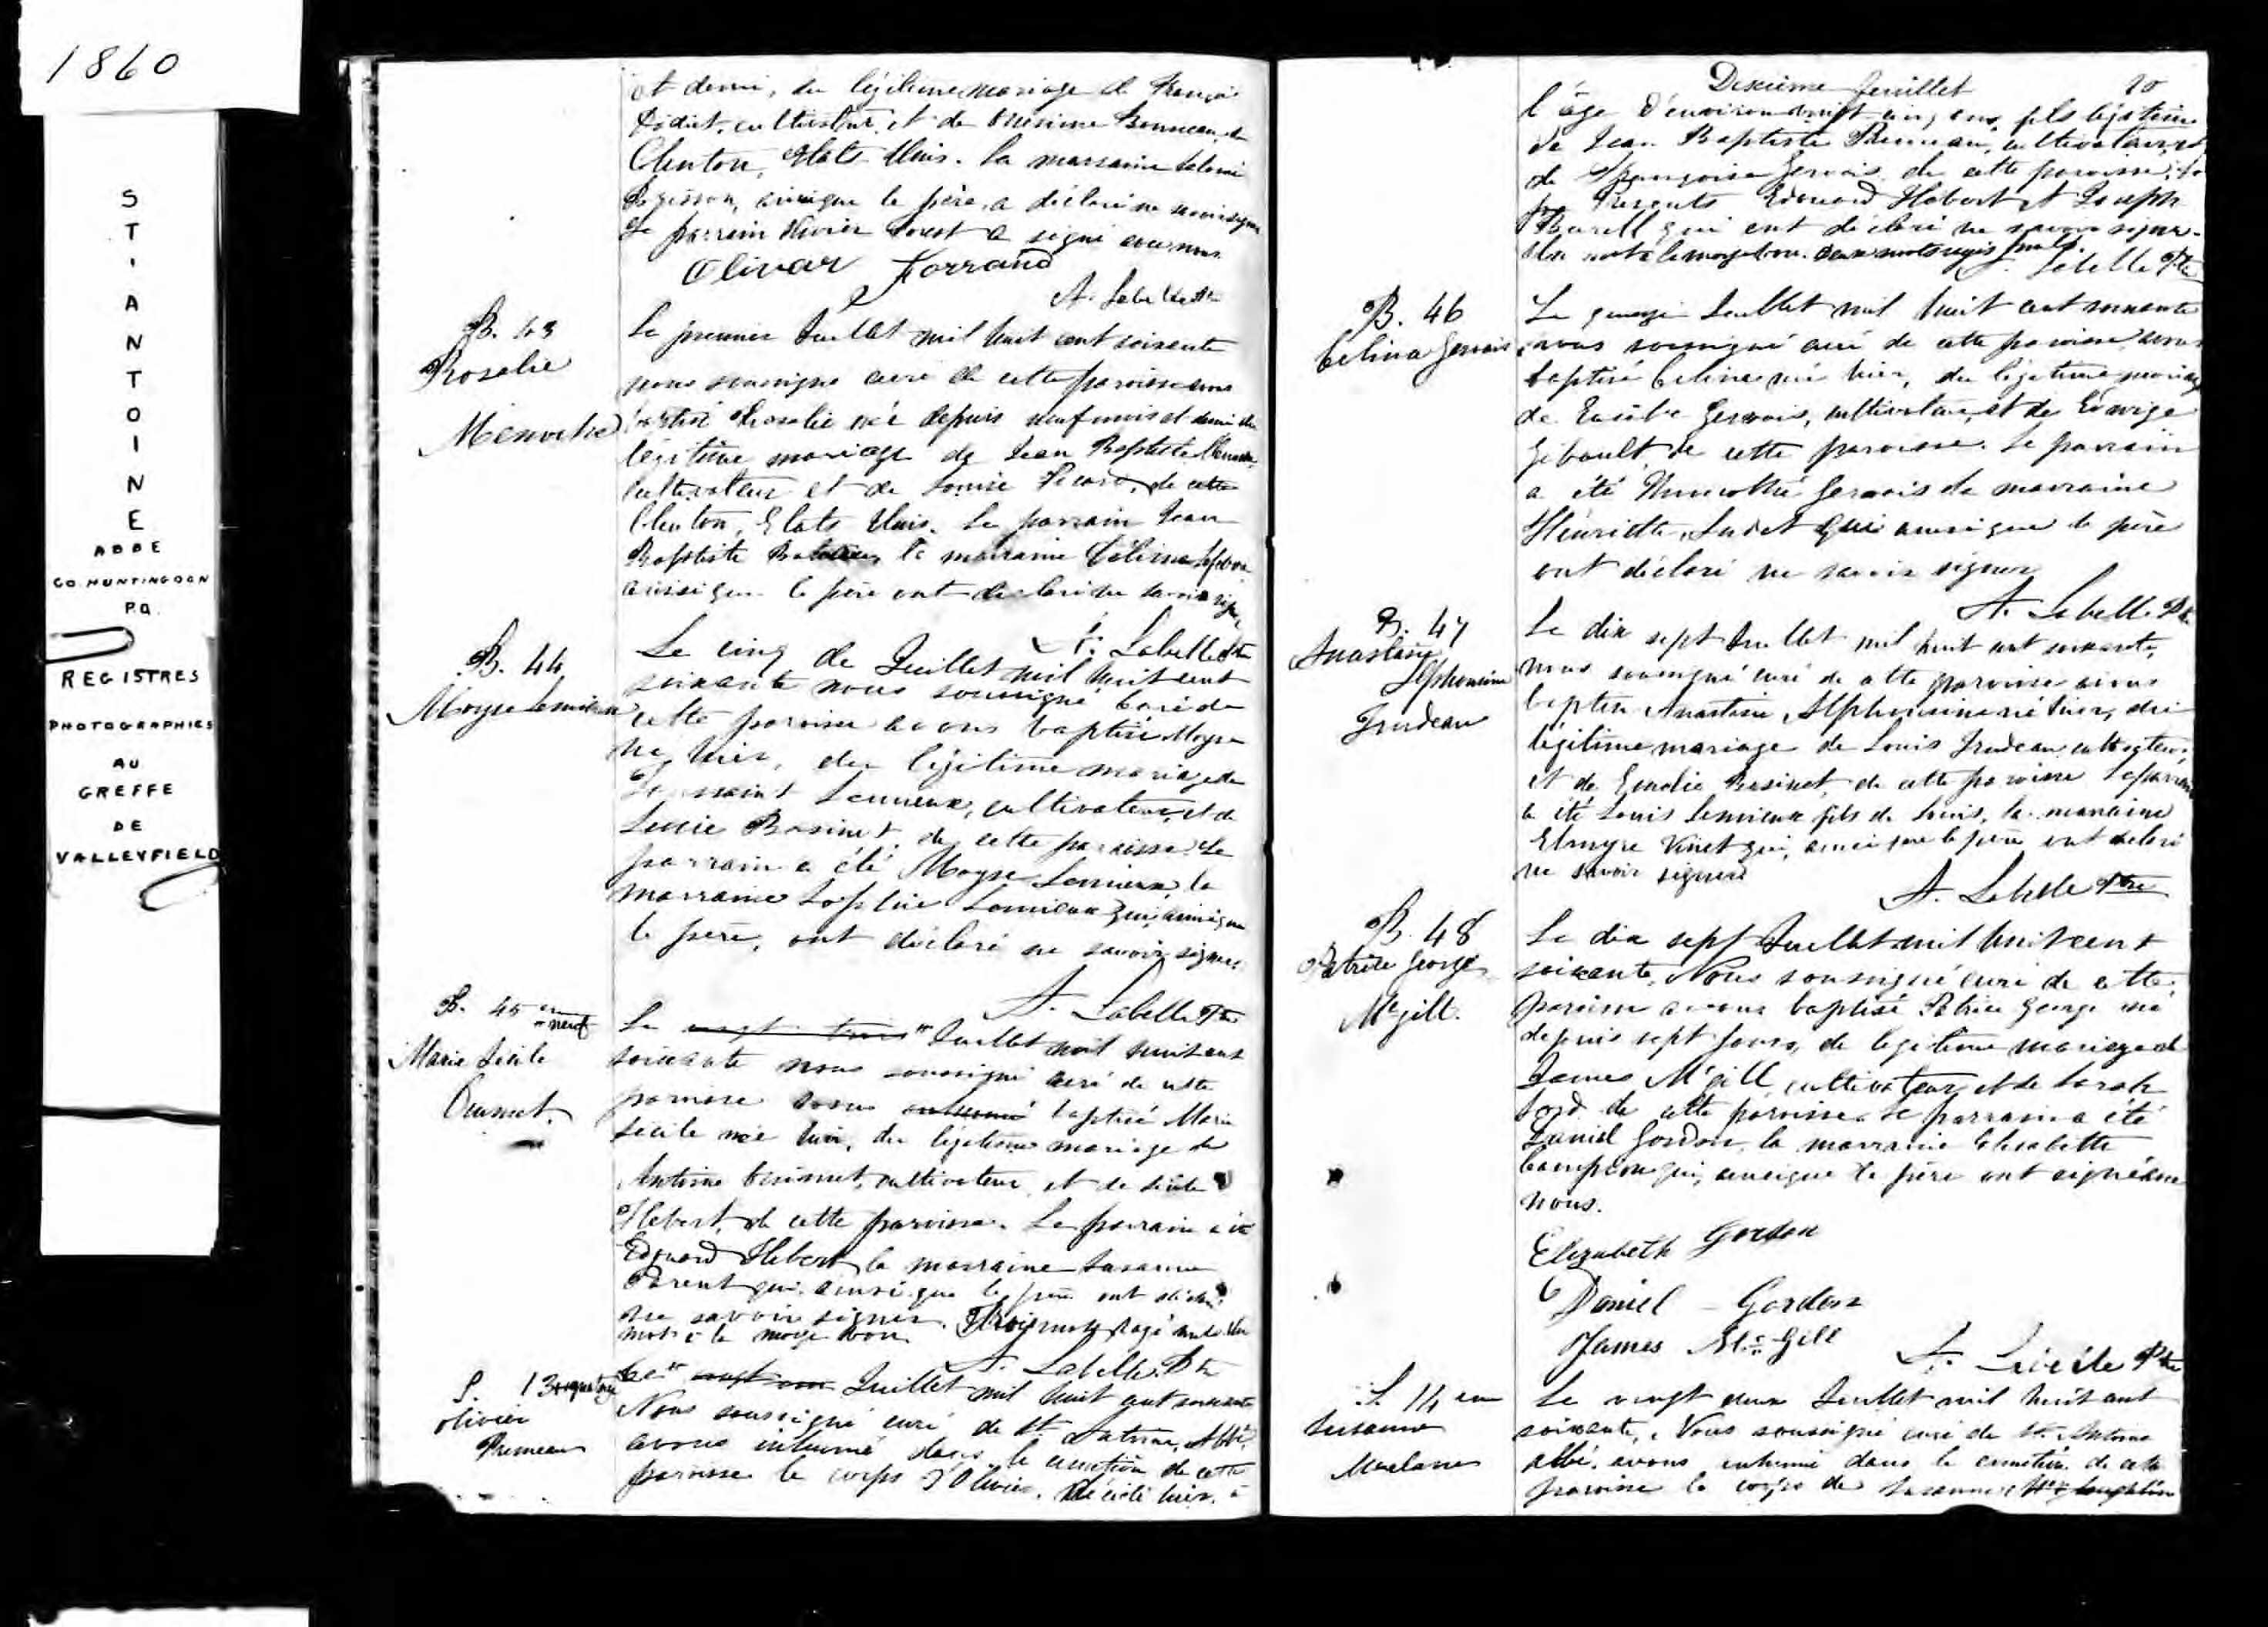 1860
ST. ANTOINE
ABBE
CO. HUNTINGDON
P.Q.
REGISTRES
PHOTOGRAPHIES
AU
GREFFE
DE
VALLEYFIELD
et demi, du légitime mariage de François
cultivateur, et de Bonneau, de
Clinton, Etats Unis. La marraine
ainsi que le père, a déclaré ne savoir signer
Le parrain Olivier a signé avec nous.
Olivar Farrand
A. Labelle Ptre
B. 43
Rosalie
Menard
Le premier Juillet mil huit cent soixante
nous soussigné curé de cette paroisse avons
baptisé Rosalie née depuis neuf mois et demi du
légitime mariage de Jean Baptiste
cultivateur et de Louise Picard, de cette
Clinton, Etats Unis. Le parrain Jean
Baptiste la marraine Célina
ainsi que le père ont déclaré ne savoir signer
A. Labelle Ptre
B. 44
Moyse Lemieux
Le cinq de Juillet mil huit cent
soixante nous soussigné Curé de
cette paroisse avons baptisé Moyse
né hier, du légitime mariage de
Toussaint Lemieux, cultivateur, et de
Lucie Basinet, de cette paroisse. Le
parrain a été Moyse Lemieux, la
marraine Sophie Lemieux qui, ainsi que
le père, ont déclaré ne savoir signer.
A. Labelle Ptre
B. 45
neuf
Marie Sécile
Ouimet.
Le vingt trois Juillet mil huit cent
soixante nous soussigné curé de cette
paroisse avons inhumé baptisé Marie
Sécile née hier, du légitime mariage de
Antoine Ouimet, cultivateur, et de Sécile
Hebert, de cette paroisse. Le parrain a été
Edouard Hebert la marraine Susanne
Parent qui, ainsi que le père ont déclaré
ne savoir signer. Trois mots rayé nuls. Un
mot à la marge bon.
A. Labelle Ptre
S. 13 quatorze
Olivier
Primeau
Le vingt Juillet mil huit cent soixante
Nous soussigné curé de St. Antoine, Abbé,
avons inhumé dans le cimetière de cette
paroisse le corps d'Olivier, décédé hier, à
Dixième feuillet 10
l'âge d'environ vingt cinq ans, fils légitime
de Jean Baptiste Primeau, cultivateur, et
de Françoise Gervais, de cette paroisse.
Présents Edouard Hebert et Joseph
qui ont déclaré ne savoir signer.
Un mot à la marge bon. Deux mots rayés nuls.
A. Labelle Ptre
B. 46
Célina Gervais
Le quinze Juillet mil huit cent soixante
nous soussigné curé de cette paroisse avons
baptisé Célina née hier, du légitime mariage
de Gervais, cultivateur, et de Edwige
Gibault, de cette paroisse. Le parrain
a été Gervais la marraine
Henriette qui ainsi que le père
ont déclaré ne savoir signer
A. Labelle Ptre
B. 47
Anastasie
Alphonsine
Trudeau
Le dix sept Juillet mil huit cent soixante,
nous soussigné curé de cette paroisse avons
baptisé Anastasie Alphonsine née hier, du
légitime mariage de Louis Trudeau cultivateur,
et de Emilie Basinet, de cette paroisse. Le parrain
a été Louis Lemieux fils de Louis, la marraine
Elmyre Vinet qui, ainsi que le père ont déclaré
ne savoir signer
A. Labelle Ptre
B. 48
Patrice George
McGill.
Le dix sept Juillet mil huit cent
soixante, Nous soussigné curé de cette
paroisse avons baptisé Patrice George né
depuis sept jours, de légitime mariage de
James McGill, cultivateur, et de Sarah
de cette paroisse. Le parrain a été
Daniel Gordon, la marraine Elisabette
qui, ainsi que le père ont signé avec
nous.
Elizabeth Gordon
Daniel Gordon
James McGill
A. Labelle Ptre
S. 14
Susanne
Le vingt deux Juillet mil huit cent
soixante, Nous soussigné curé de St. Antoine
abbé, avons inhumé dans le cimetière de cette
paroisse le corps de Susanne McLaughlin